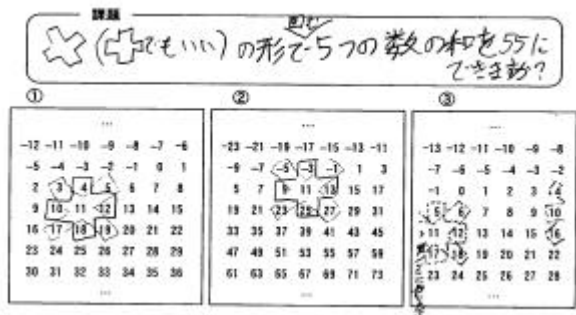 課題
囲む
(でもいい)の形で5つの数の和を55に
できますか?
①
…
-12 -11 -10 -9 -8 -7 -6
-5 -4 -3 -2 -1 0 1
2 3 4 5 6 7 8
9 10 11 12 13 14 15
16 17 18 19 20 21 22
23 24 25 26 27 28 29
30 31 32 33 34 35 36
…
②
…
-23 -21 -19 -17 -15 -13 -11
-9 -7 -5 -3 -1 1 3
5 7 9 11 13 15 17
19 21 23 25 27 29 31
33 35 37 39 41 43 45
47 49 51 53 55 57 59
61 63 65 67 69 71 73
…
③
…
-13 -12 -11 -10 -9 -8
-7 -6 -5 -4 -3 -2
-1 0 1 2 3 4
5 6 7 8 9 10
11 12 13 14 15 16
17 18 19 20 21 22
23 24 25 26 27 28
…